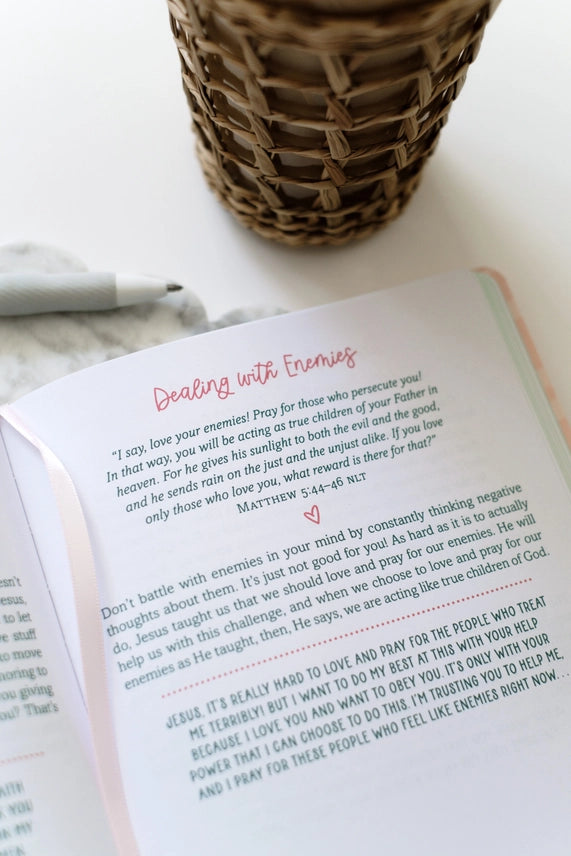 esn't
esus,
to let
ve stuff
to move
noring to
you giving
ou? That's
FAITH
YOU
MY
Dealing with Enemies
"I say, love your enemies! Pray for those who persecute you!
In that way, you will be acting as true children of your Father in
heaven. For he gives his sunlight to both the evil and the good,
and he sends rain on the just and the unjust alike. If you love
only those who love you, what reward is there for that?"
MATTHEW 5:44–46 NLT
Don't battle with enemies in your mind by constantly thinking negative
thoughts about them. It's just not good for you! As hard as it is to actually
do, Jesus taught us that we should love and pray for our enemies. He will
help us with this challenge, and when we choose to love and pray for our
enemies as He taught, then, He says, we are acting like true children of God.
JESUS, IT'S REALLY HARD TO LOVE AND PRAY FOR THE PEOPLE WHO TREAT
ME TERRIBLY! BUT I WANT TO DO MY BEST AT THIS WITH YOUR HELP
BECAUSE I LOVE YOU AND WANT TO OBEY YOU. IT'S ONLY WITH YOUR
POWER THAT I CAN CHOOSE TO DO THIS. I'M TRUSTING YOU TO HELP ME,
AND I PRAY FOR THESE PEOPLE WHO FEEL LIKE ENEMIES RIGHT NOW. . .